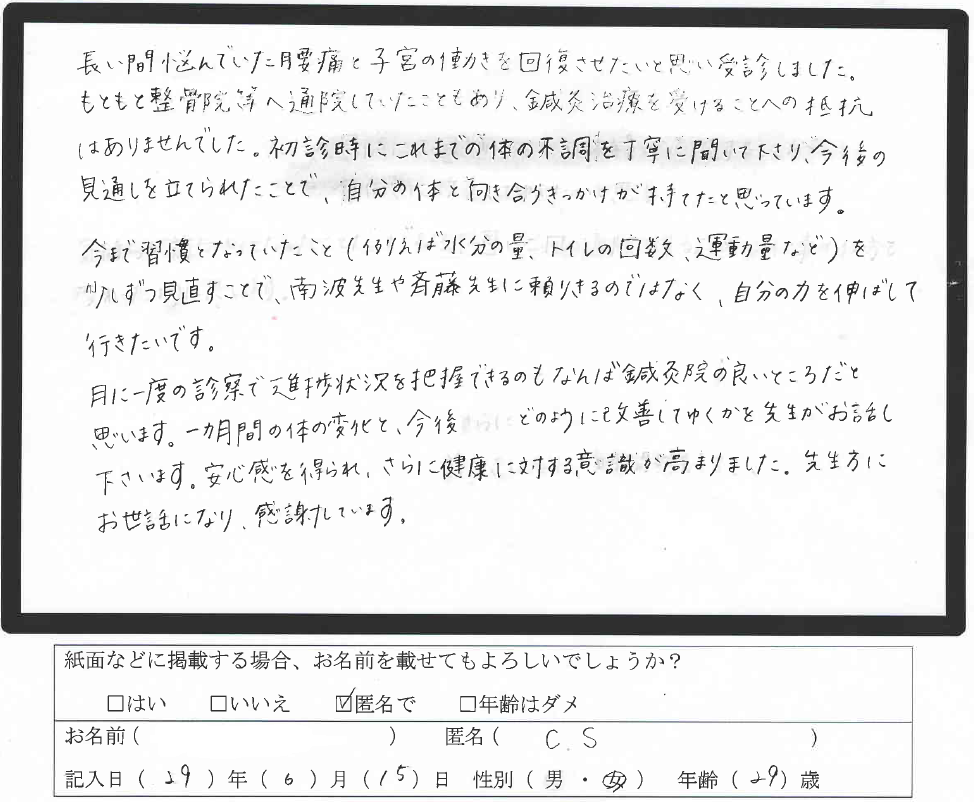 長い間悩んでいた腰痛と子宮の働きを回復させたいと思い受診しました。
もともと整骨院等へ通院していたこともあり、鍼灸治療を受けることへの抵抗
はありませんでした。初診時にこれまでの体の不調を丁寧に聞いて下さり、今後の
見通しを立てられたことで、自分の体と向き合うきっかけが持てたと思っています。
今まで習慣となっていたこと(例えば水分の量、トイレの回数、運動量など)を
少しずつ見直すことで、南波先生や斉藤先生に頼りきるのではなく、自分の力を伸ばして
行きたいです。
月に一度の診察で進捗状況を把握できるのもなんば鍼灸院の良いところだと
思います。一カ月間の体の変化と、今後どのように改善してゆくかを先生がお話し
下さいます。安心感を得られ、さらに健康に対する意識が高まりました。先生方に
お世話になり、感謝しています。
紙面などに掲載する場合、お名前を載せてもよろしいでしょうか?
□はい □いいえ ☑匿名で □年齢はダメ
お名前( ) 匿名( C.S )
記入日(29)年(6)月(15)日 性別(男・女) 年齢(29)歳